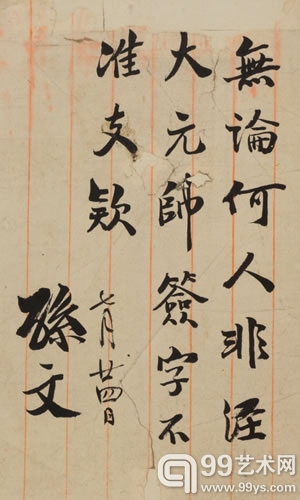 無論何人非經
大元帥簽字不
准支欵
七月廿四日
孫文
99艺术网
www.99ys.com